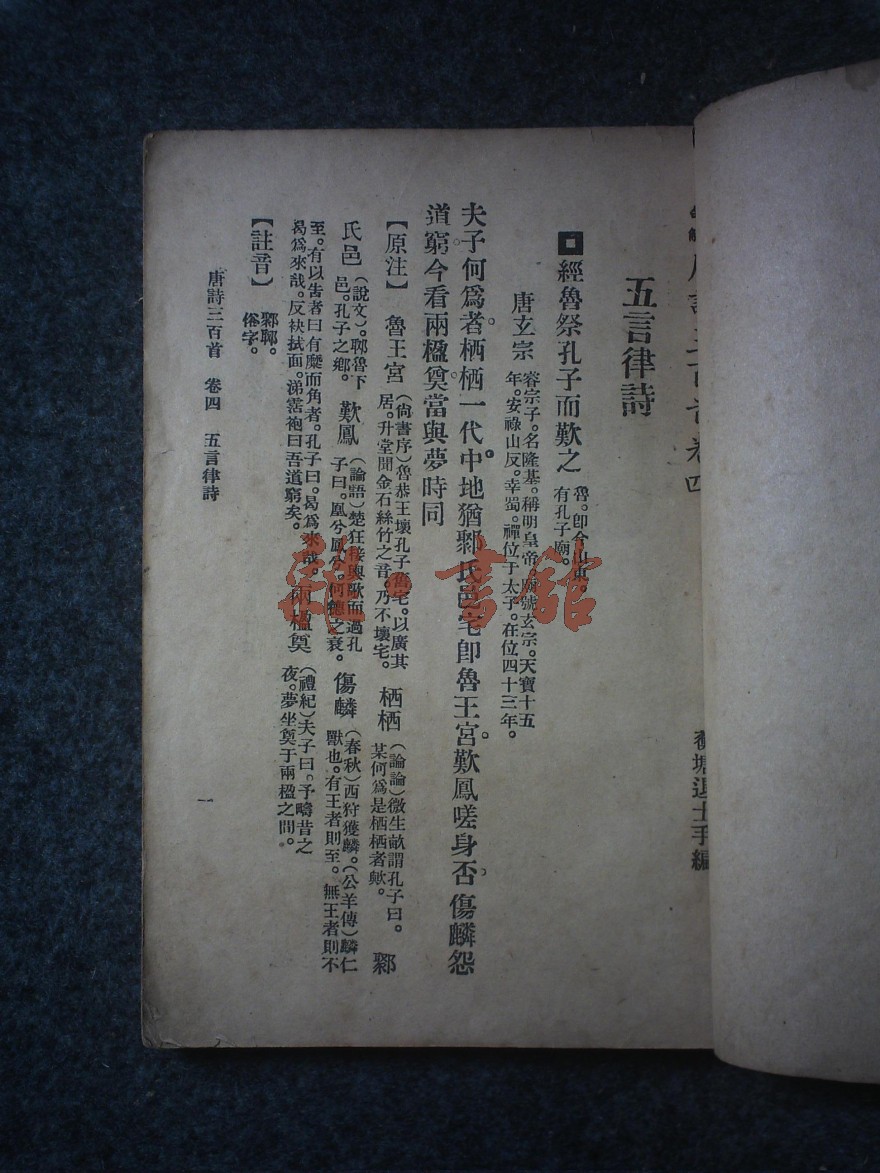 唐詩三百首卷四
蘅塘退士手編
五言律詩
經魯祭孔子而歎之
魯。卽今山東。
有孔子廟。
唐玄宗
睿宗子。名隆基。稱明皇帝。廟號玄宗。天寶十五
年。安祿山反。幸蜀。禪位于太子。在位四十三年。
夫子何爲者。栖栖一代中。地猶鄹氏邑宅卽魯王宮。歎鳳嗟身否、傷麟怨
道窮。今看兩楹奠當與夢時同
【原注】 魯王宮 (尙書序)魯恭王壞孔子舊宅。以廣其
居。升堂聞金石絲竹之音。乃不壞宅。 栖栖 (論論)微生畝謂孔子曰。
某何爲是栖栖者歟。 鄹
氏邑 (說文)。鄹魯下
邑。孔子之鄕。 歎鳳 (論語)楚狂接輿歌而過孔
子曰。鳳兮鳳兮。何德之衰。 傷麟 (春秋)西狩獲麟。(公羊傳)麟仁
獸也。有王者則至。無王者則不
至。有以吿者曰有麏而角者。孔子曰。曷爲來哉。
曷爲來哉。反袂拭面。涕霑袍曰吾道窮矣。 兩楹奠 (禮紀)夫子曰。予疇昔之
夜。夢坐奠于兩楹之間。
【註音】 鄹鄹。
俗字。
唐詩三百首 卷四 五言律詩
一
書館